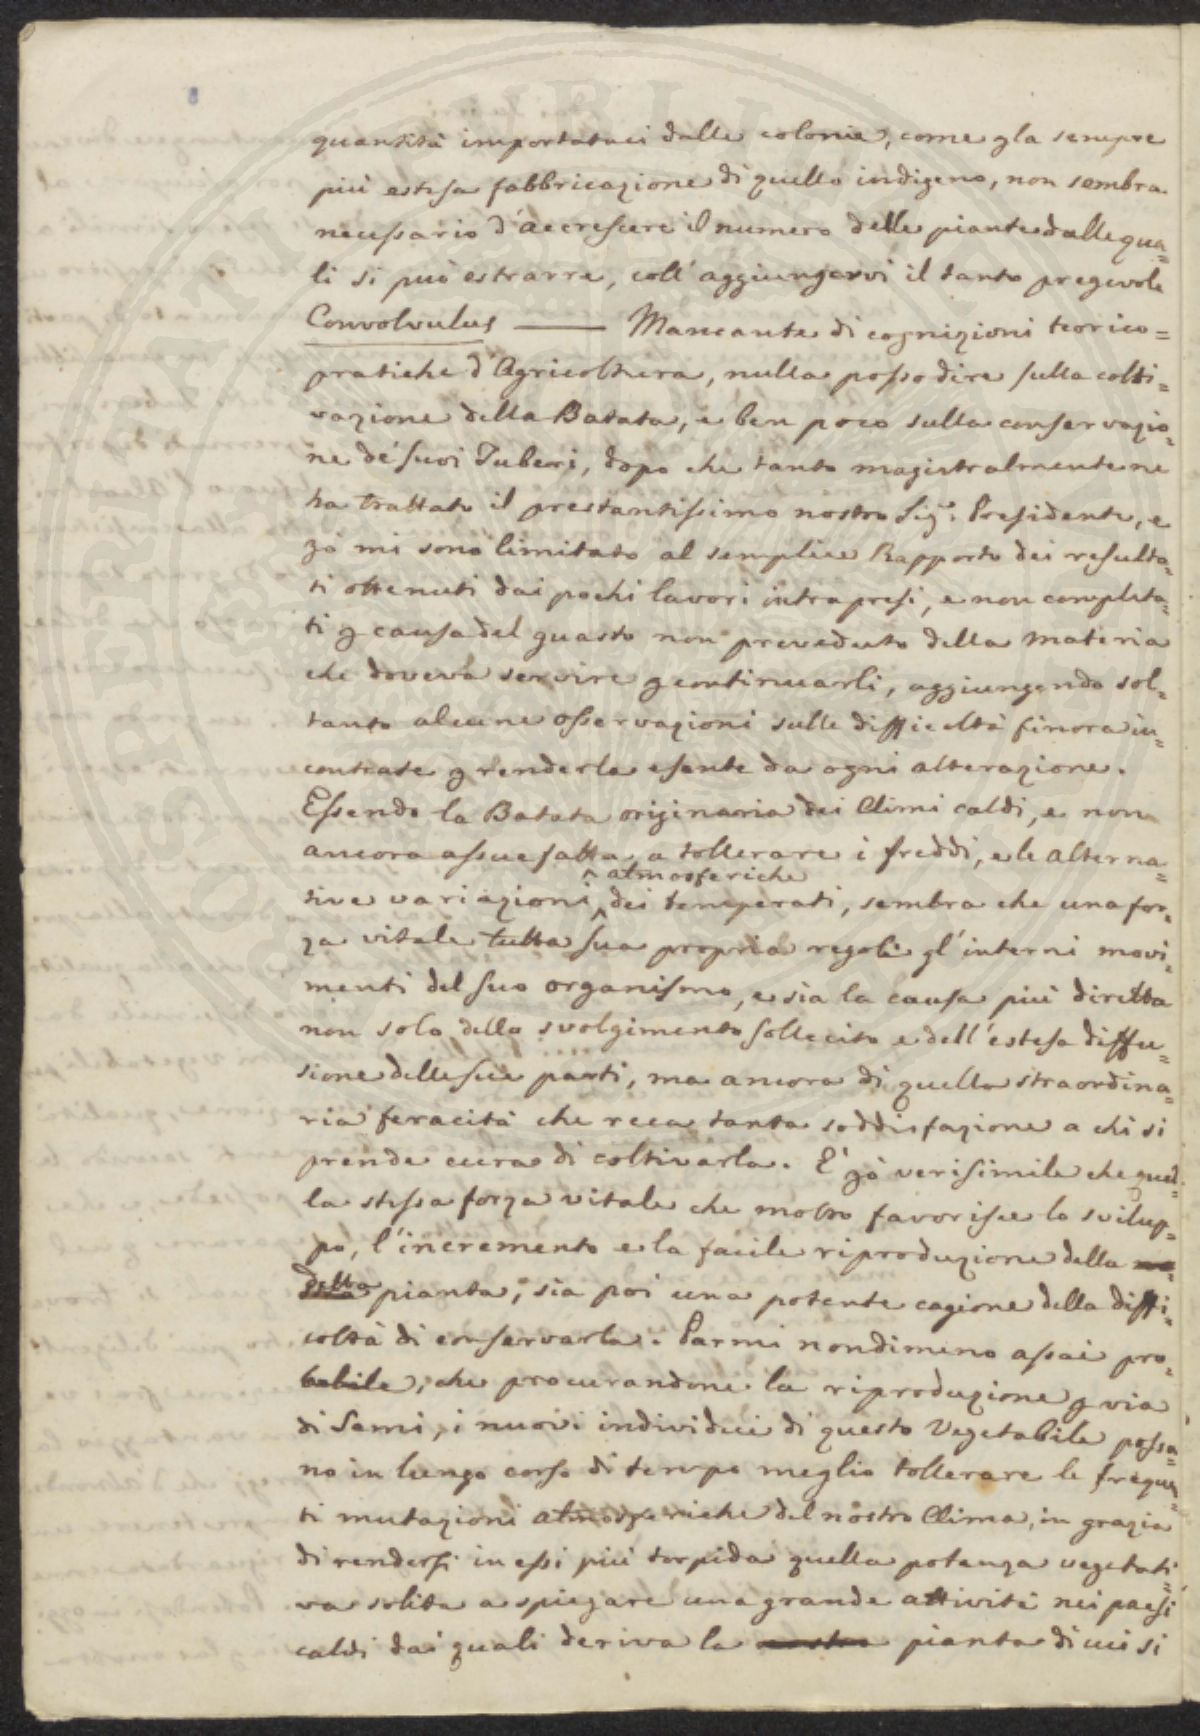 quantità importataci dalle colonie, come p la sempre
più estesa fabbricazione di quello indigeno, non sembra
necessario d'accrescere il numero delle piante dalle qua=
li si può estrarre, coll'aggiungervi il tanto pregevole
Convolvulus —— Mancante di cognizioni teorico=
pratiche d'Agricoltura, nulla posso dire sulla colti=
vazione della Batata, e ben poco sulla conservazio=
ne de' suoi Tuberi, dopo che tanto magistralmente ne
ha trattato il prestantissimo nostro Sig.r Presidente, e
pò mi sono limitato al semplice Rapporto dei resulta=
ti ottenuti dai pochi lavori intrapresi, e non completa=
ti p causa del guasto non preveduto della materia
che doveva servire p continuarli, aggiungendo sol=
tanto alcune osservazioni sulle difficoltà finora in=
contrate p renderla esente da ogni alterazione.
Essendo la Batata originaria dei Climi caldi, e non
ancora assuefatta a tollerare i freddi, e le alterna=
atmosferiche
tive variazioni dei temperati, sembra che una for=
za vitale tutta sua propria regoli gl'interni movi=
menti del suo organismo, e sia la causa più diretta
non solo dello svolgimento sollecito e dell'estesa diffu=
sione delle sue parti, ma ancora di quella straordina=
ria feracità che reca tanta soddisfazione a chi si
prende cura di coltivarla. E' pò verisimile che quel=
la stessa forza vitale che molto favorisce lo svilup=
po, l'incremento e la facile riproduzione della
detta pianta, sia poi una potente cagione della diffi=
coltà di conservarla. Parmi nondimeno assai pro=
babile, che procurandone la riproduzione p via
di Semi, i nuovi individui di questo Vegetabile possa=
no in lungo corso di tempo meglio tollerare le frequen=
ti mutazioni atmosferiche del nostro Clima, in grazia
di rendersi in essi più torpida quella potenza vegetati=
va solita a spiegare una grande attività nei paesi
caldi dai quali deriva la nostra pianta di cui si